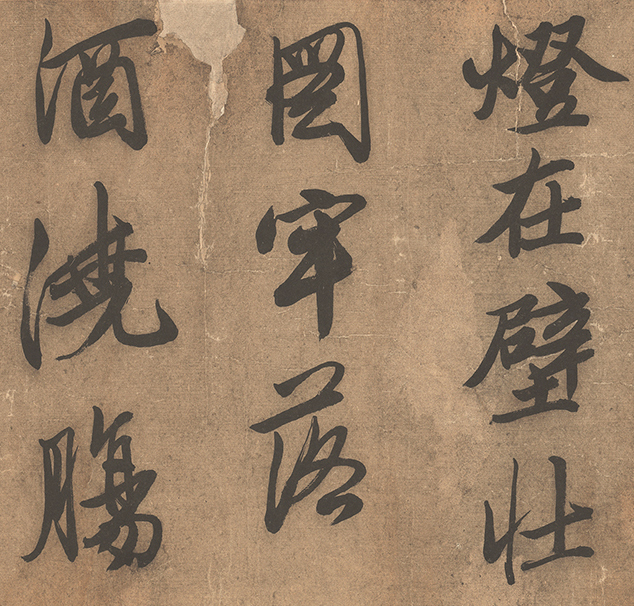 燈在壁壮
圖牢落
酒澆腸